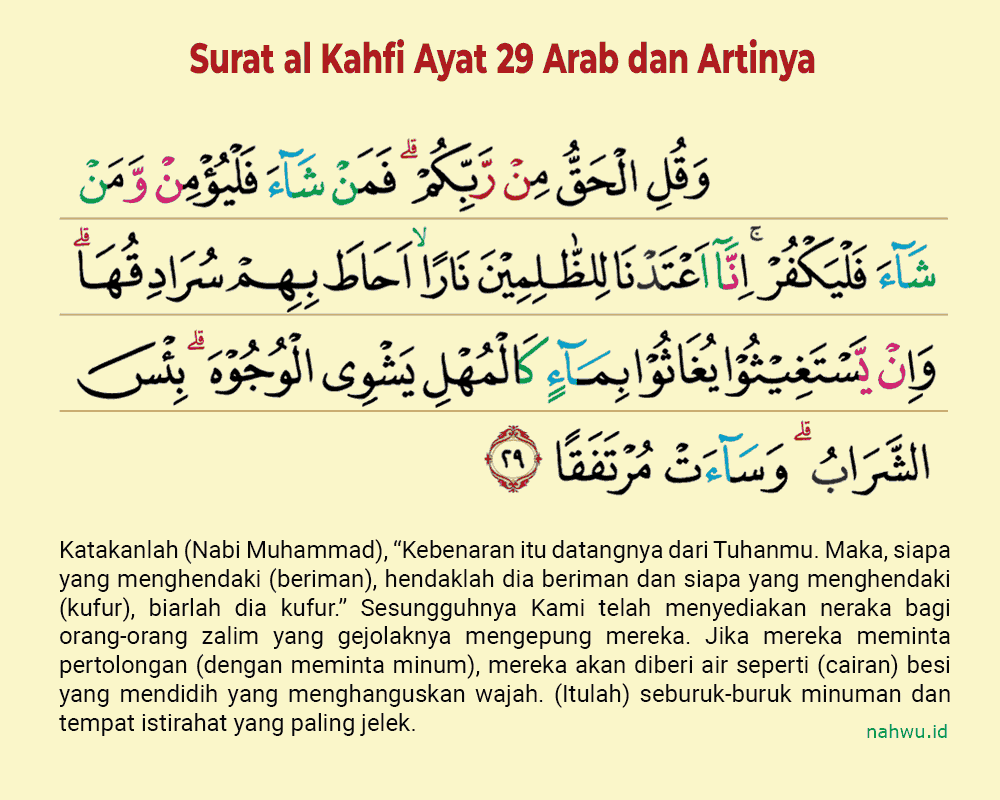 Surat al Kahfi Ayat 29 Arab dan Artinya
وَقُلِ الْحَقُّ مِنْ رَّبِّكُمْۗ فَمَنْ شَاۤءَ فَلْيُؤْمِنْ وَّمَنْ
شَاۤءَ فَلْيَكْفُرْۚ اِنَّآ اَعْتَدْنَا لِلظّٰلِمِيْنَ نَارًاۙ اَحَاطَ بِهِمْ سُرَادِقُهَاۗ
وَاِنْ يَّسْتَغِيْثُوْا يُغَاثُوْا بِمَاۤءٍ كَالْمُهْلِ يَشْوِى الْوُجُوْهَۗ بِئْسَ
الشَّرَابُۗ وَسَاۤءَتْ مُرْتَفَقًا ٢٩
Katakanlah (Nabi Muhammad), “Kebenaran itu datangnya dari Tuhanmu. Maka, siapa
yang menghendaki (beriman), hendaklah dia beriman dan siapa yang menghendaki
(kufur), biarlah dia kufur.” Sesungguhnya Kami telah menyediakan neraka bagi
orang-orang zalim yang gejolaknya mengepung mereka. Jika mereka meminta
pertolongan (dengan meminta minum), mereka akan diberi air seperti (cairan) besi
yang mendidih yang menghanguskan wajah. (Itulah) seburuk-buruk minuman dan
tempat istirahat yang paling jelek.
nahwu.id